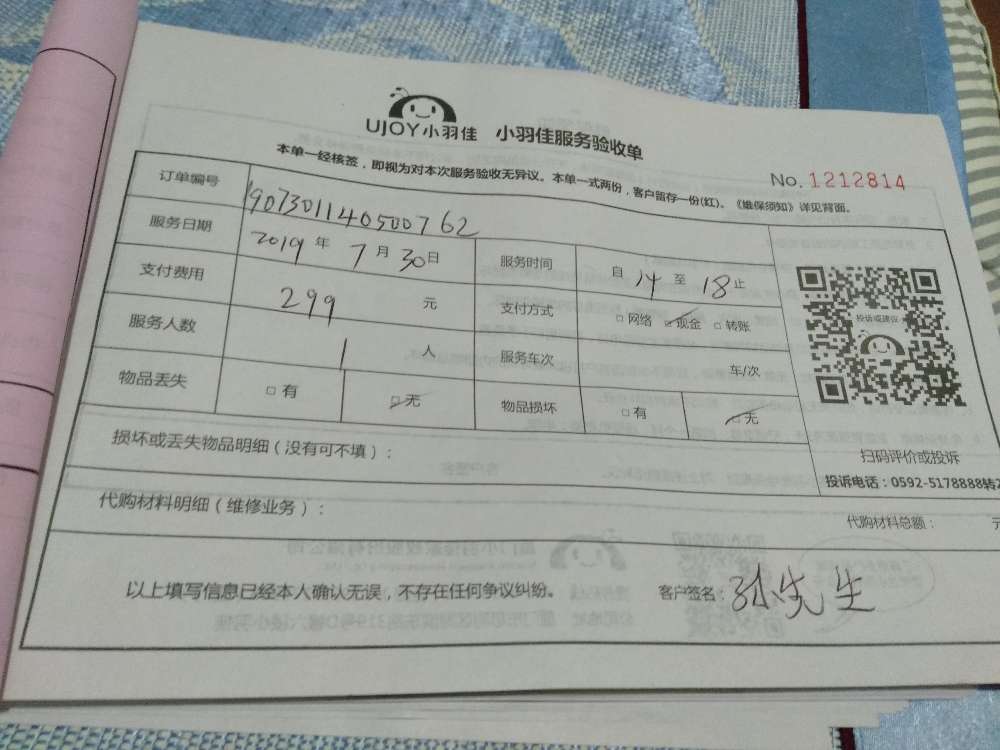 UJOY小羽佳 小羽佳服务验收单
本单一经核签，即视为对本次服务验收无异议。本单一式两份，客户留存一份(红)。《维保须知》详见背面。
No. 1212814
订单编号 190730114050762
服务日期 2019 年 7 月 30 日 服务时间 自 14 至 18 止
支付费用 299 元 支付方式 □网络 ☑现金 □转账
服务人数 1 人 服务车次 车/次
物品丢失 □有 ☑无 物品损坏 □有 ☑无
投诉或建议
扫码评价或投诉
投诉电话：0592-5178888转
损坏或丢失物品明细（没有可不填）：
代购材料明细（维修业务）：
代购材料总额： 元
以上填写信息已经本人确认无误，不存在任何争议纠纷。 客户签名：孙先生